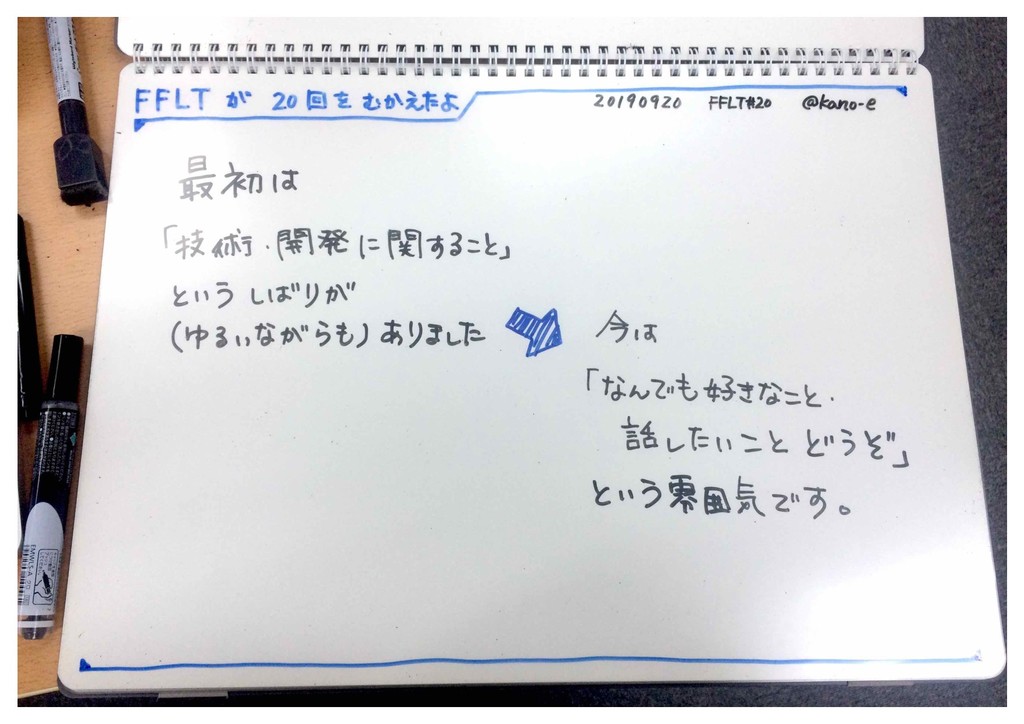 FFLTが 20回をむかえたよ
20190920 FFLT#20 @kano-e
最初は
「技術・開発に関すること」
という しばりが
(ゆるいながらも) ありました
今は
「なんでも好きなこと・
話したいこと どうぞ」
という雰囲気です。
EMWLS-A